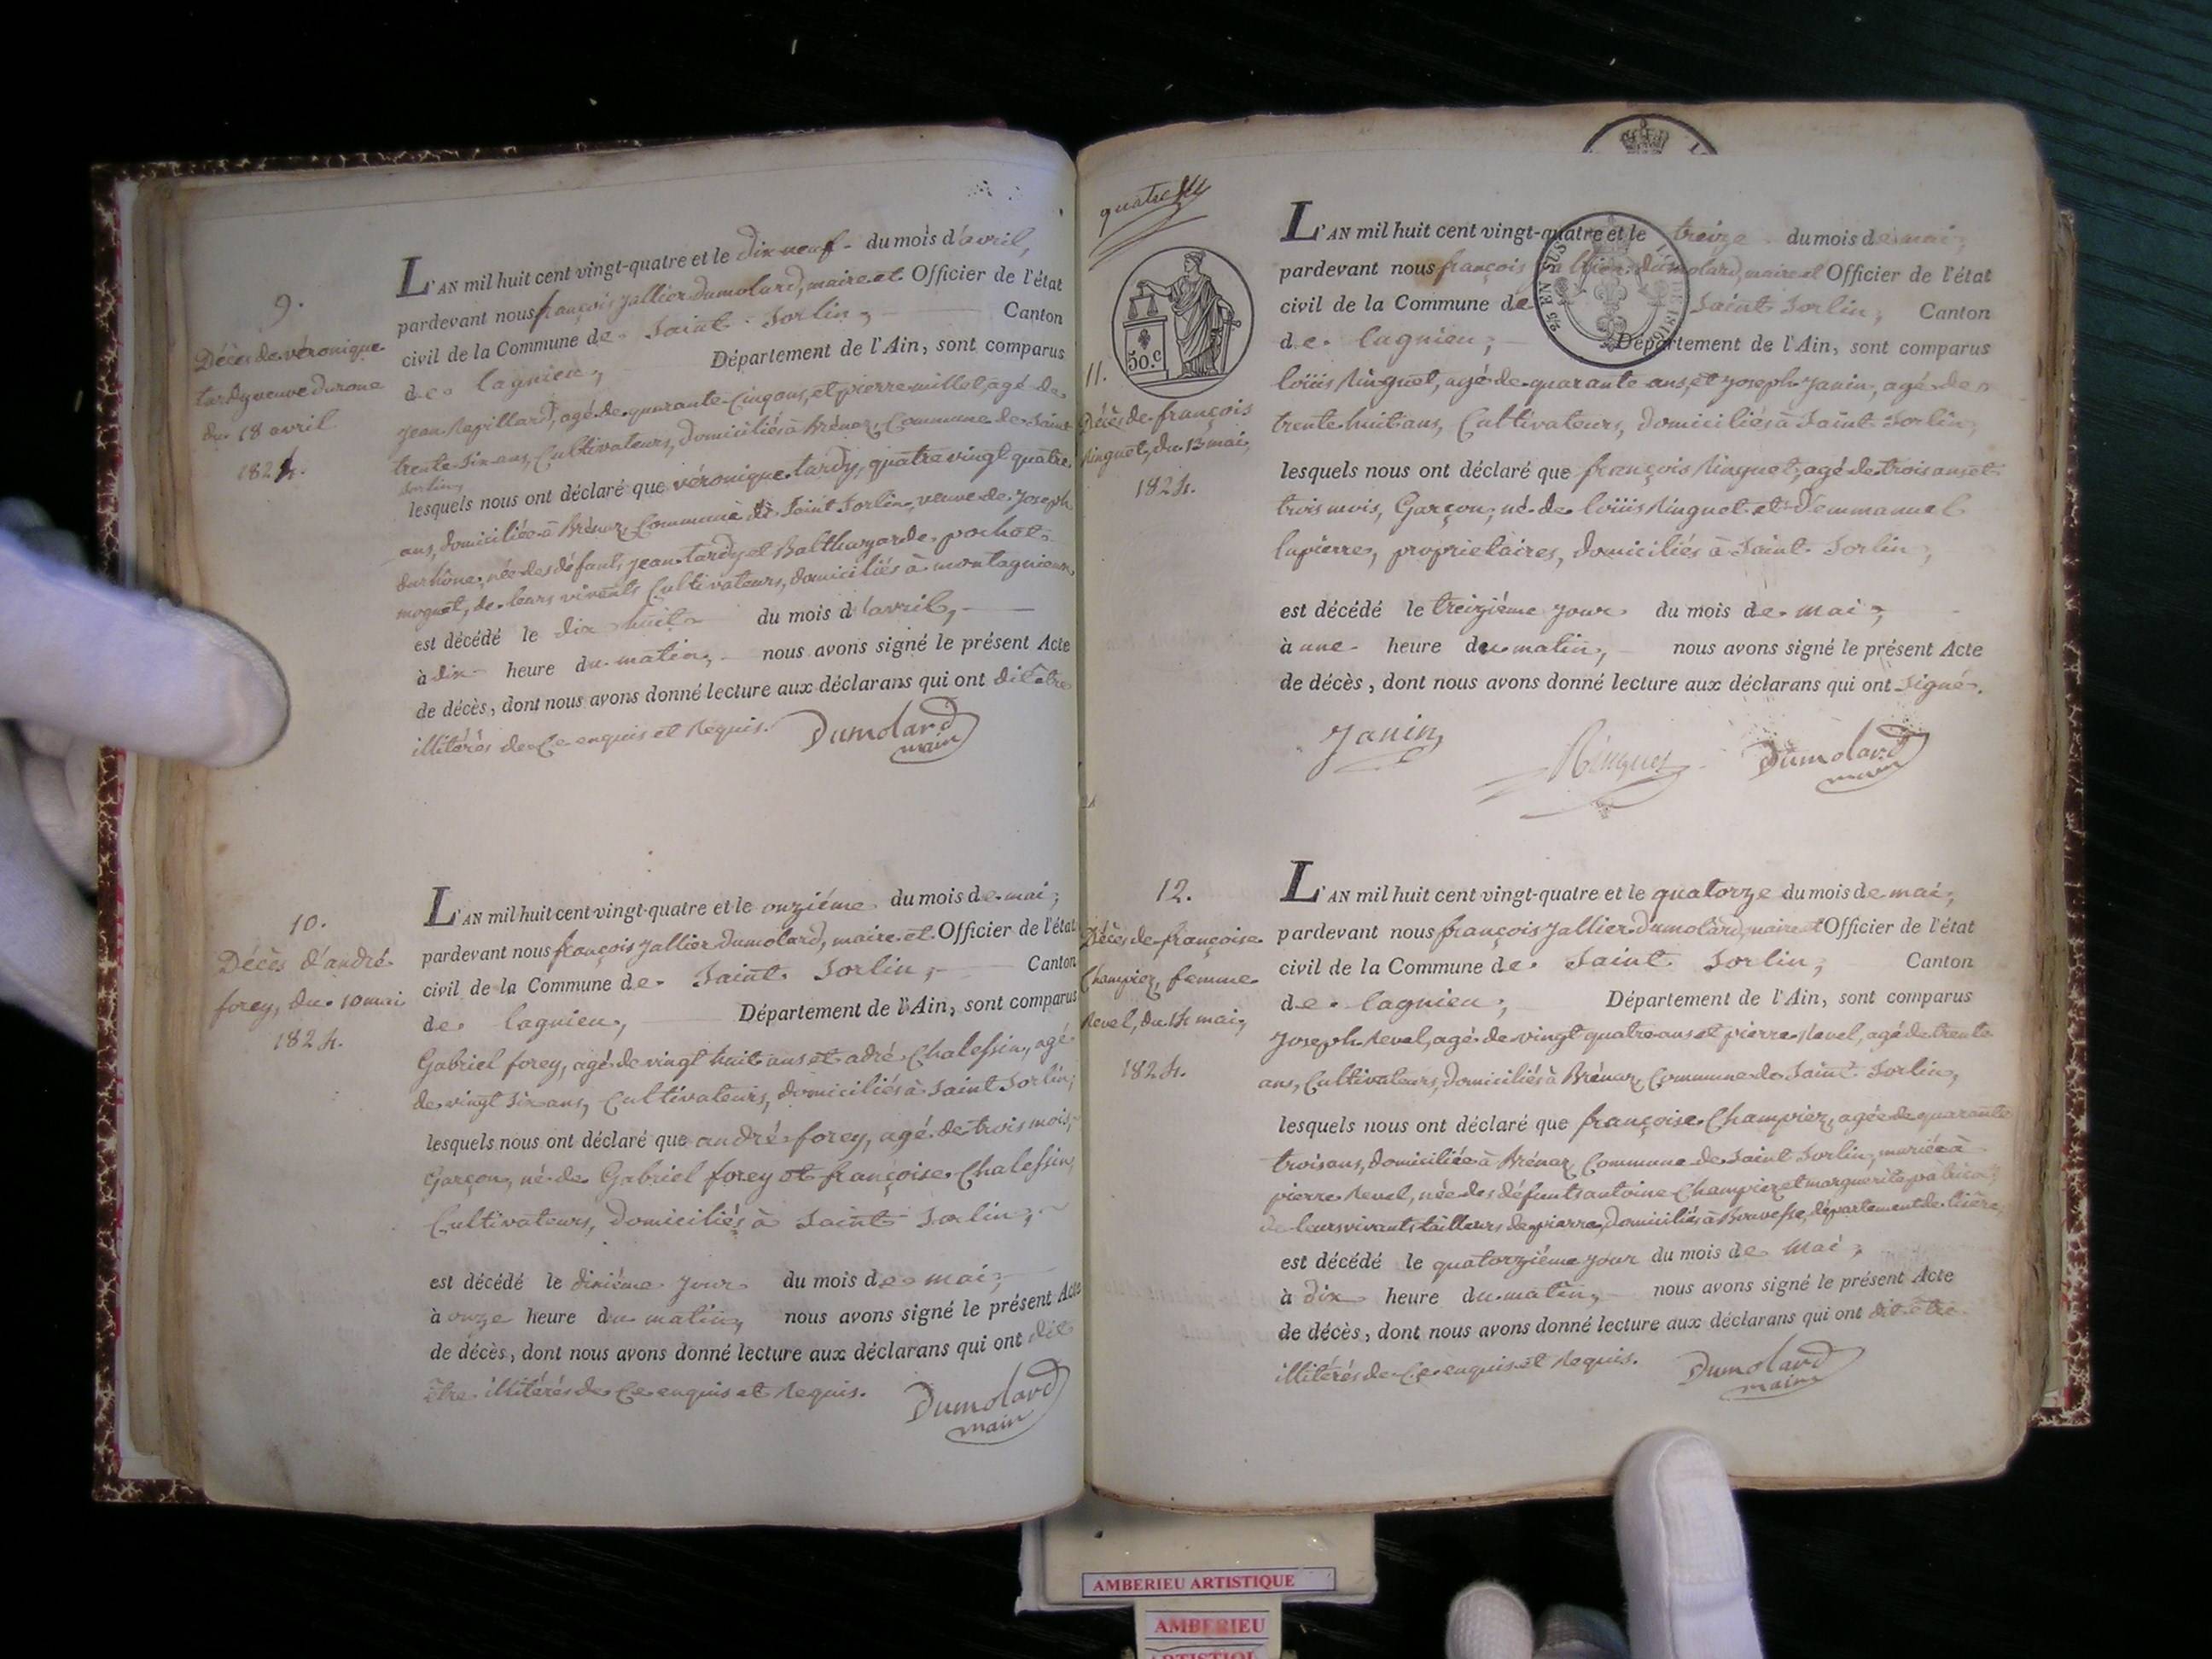 9.
Décès de véronique
tardy veuve durone
du 18 avril
1824.
L'AN mil huit cent vingt-quatre et le dix neuf du mois d'avril,
pardevant nous françois Jallier Dumolard, maire et Officier de l'état
civil de la Commune de Saint Sorlin, Canton
de lagnieu, Département de l'Ain, sont comparus
Jean Repillard, agé de quarante Cinq ans, et pierre millet, agé de
trente six ans, Cultivateurs, domiciliés à Brénaz, Commune de Saint
Sorlin,
lesquels nous ont déclaré que véronique tardy, quatre vingt quatre
ans, domiciliée à Brénaz, Commune de Saint Sorlin, veuve de Joseph
durhône, née des défunts Jean tardy et Balthazarde pochet
moquet, de leurs vivants Cultivateurs, domiciliés à montagnieux
est décédé le dix huit du mois d'avril,
à dix heure du matin, nous avons signé le présent Acte
de décès, dont nous avons donné lecture aux déclarans qui ont dit être
illitérés de Ce enquis et Requis. Dumolard
maire
10.
Décès d'andré
forey, du 10 mai
1824.
L'AN mil huit cent vingt-quatre et le onziéme du mois de mai,
pardevant nous françois Jallier Dumolard, maire et Officier de l'état
civil de la Commune de Saint Sorlin, Canton
de lagnieu, Département de l'Ain, sont comparus
Gabriel forey, agé de vingt huit ans et adré Chalessin, agé
de vingt six ans, Cultivateurs, domiciliés à Saint Sorlin,
lesquels nous ont déclaré que andré forey, agé de trois mois,
Garçon, né de Gabriel forey et françoise Chalessin,
Cultivateurs, domiciliés à Saint Sorlin,
est décédé le dixiéme jour du mois de mai,
à onze heure du matin, nous avons signé le présent Acte
de décès, dont nous avons donné lecture aux déclarans qui ont dit
être illitérés de Ce enquis et Requis.
Dumolard
maire
quatre
50.c
25 EN SUS
DE 1816
11.
Décès de françois
Ringuet, du 13 mai,
1824.
L'AN mil huit cent vingt-quatre et le treize du mois de mai,
pardevant nous françois Jallier Dumolard, maire et Officier de l'état
civil de la Commune de Saint Sorlin, Canton
de lagnieu, Département de l'Ain, sont comparus
loüis Ringuet, agé de quarante ans, et Joseph Janin, agé de
trente huit ans, Cultivateurs, domiciliés à Saint Sorlin,
lesquels nous ont déclaré que françois Ringuet, agé de trois ans et
trois mois, Garçon, né de loüis Ringuet et d'emmanuel
lapierre, propriétaires, domiciliés à Saint Sorlin,
est décédé le treiziéme jour du mois de mai,
à une heure du matin, nous avons signé le présent Acte
de décès, dont nous avons donné lecture aux déclarans qui ont signé.
Janin
Ringuet
Dumolard
maire
12.
Décès de françoise
Champiez, femme
Revel, du 14 mai,
1824.
L'AN mil huit cent vingt-quatre et le quatorze du mois de mai,
pardevant nous françois Jallier Dumolard, maire et Officier de l'état
civil de la Commune de Saint Sorlin, Canton
de lagnieu, Département de l'Ain, sont comparus
Joseph Revel, agé de vingt quatre ans et pierre Revel, agé de trente
ans, Cultivateurs, domiciliés à Brénaz, Commune de Saint Sorlin,
lesquels nous ont déclaré que françoise Champiez, agée de quarante
trois ans, domiciliée à Brénaz, Commune de Saint Sorlin, mariée à
pierre Revel, née des défunts antoine Champiez et marguerite
de leurs vivants tailleurs de pierre, domiciliés à Bouvesse, département de lisère,
est décédé le quatorziéme jour du mois de mai,
à dix heure du matin, nous avons signé le présent Acte
de décès, dont nous avons donné lecture aux déclarans qui ont dit être
illitérés de Ce enquis et Requis.
Dumolard
maire
AMBERIEU ARTISTIQUE
AMBERIEU
ARTISTIQUE